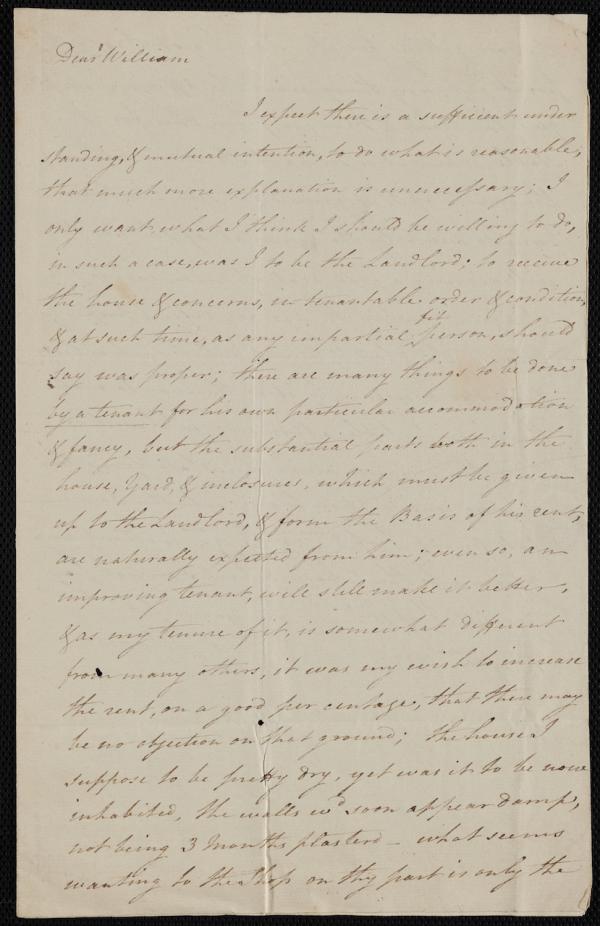 Dear William
I expect there is a sufficient under
standing, & mutual intention, to do what is reasonable,
that much more explanation is unnecessary; I
only want what I think I should be willing to do,
in such a case, was I to be the Landlord; to receive
the house & concerns, in tenantable order & condition,
& at such time, as any impartial fit person, should
say was proper; there are many things to be done
by a tenant for his own particular accommodation
& fancy, but the substantial parts both in the
house, Yard, & inclosures, which must be given
up to the Landlord, & form the Basis of his rent,
are naturally expected from him; even so, an
improving tenant, will still make it better,
& as my tenure of it, is somewhat different
from many others, it was my wish to increase
the rent, on a good per centage, that there may
be no objection on that ground; the house I
suppose to be pretty dry, yet was it to be now
inhabited, the walls wd soon appear damp,
not being 3 Months plasterd - what seems
wanting to the Shop on thy part is only the